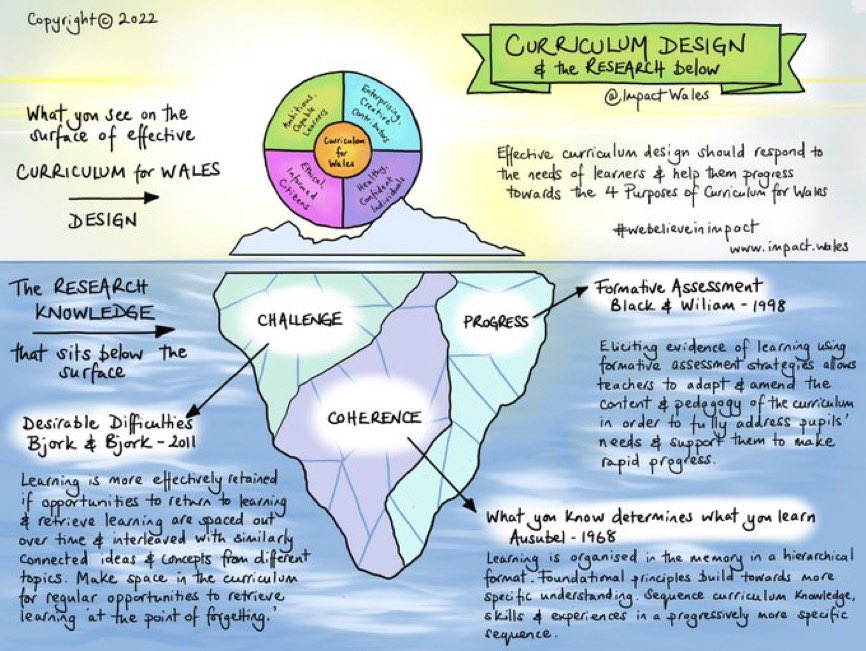 Copyright © 2022
CURRICULUM DESIGN
& the RESEARCH below
@Impact Wales
What you see on the
surface of effective
CURRICULUM for WALES
DESIGN
Ambitious,
Capable
Learners
Enterprising,
Creative
Contributors
Curriculum
for
Wales
Ethical
Informed
Citizens
Healthy,
Confident
Individuals
Effective curriculum design should respond to
the needs of learners & help them progress
towards the 4 Purposes of Curriculum for Wales
#webelieveinimpact
www.impact.wales
The RESEARCH
KNOWLEDGE
that sits below the
surface
CHALLENGE
PROGRESS
COHERENCE
Formative Assessment
Black & Wiliam - 1998
Eliciting evidence of learning using
formative assessment strategies allows
teachers to adapt & amend the
content & pedagogy of the curriculum
in order to fully address pupils'
needs & support them to make
rapid progress.
Desirable Difficulties
Bjork & Bjork - 2011
Learning is more effectively retained
if opportunities to return to learning
& retrieve learning are spaced out
over time & interleaved with similarly
connected ideas & concepts from different
topics. Make space in the curriculum
for regular opportunities to retrieve
learning 'at the point of forgetting.'
What you know determines what you learn
Ausubel - 1968
Learning is organised in the memory in a hierarchical
format. Foundational principles build towards more
specific understanding. Sequence curriculum knowledge,
skills & experiences in a progressively more specific
sequence.